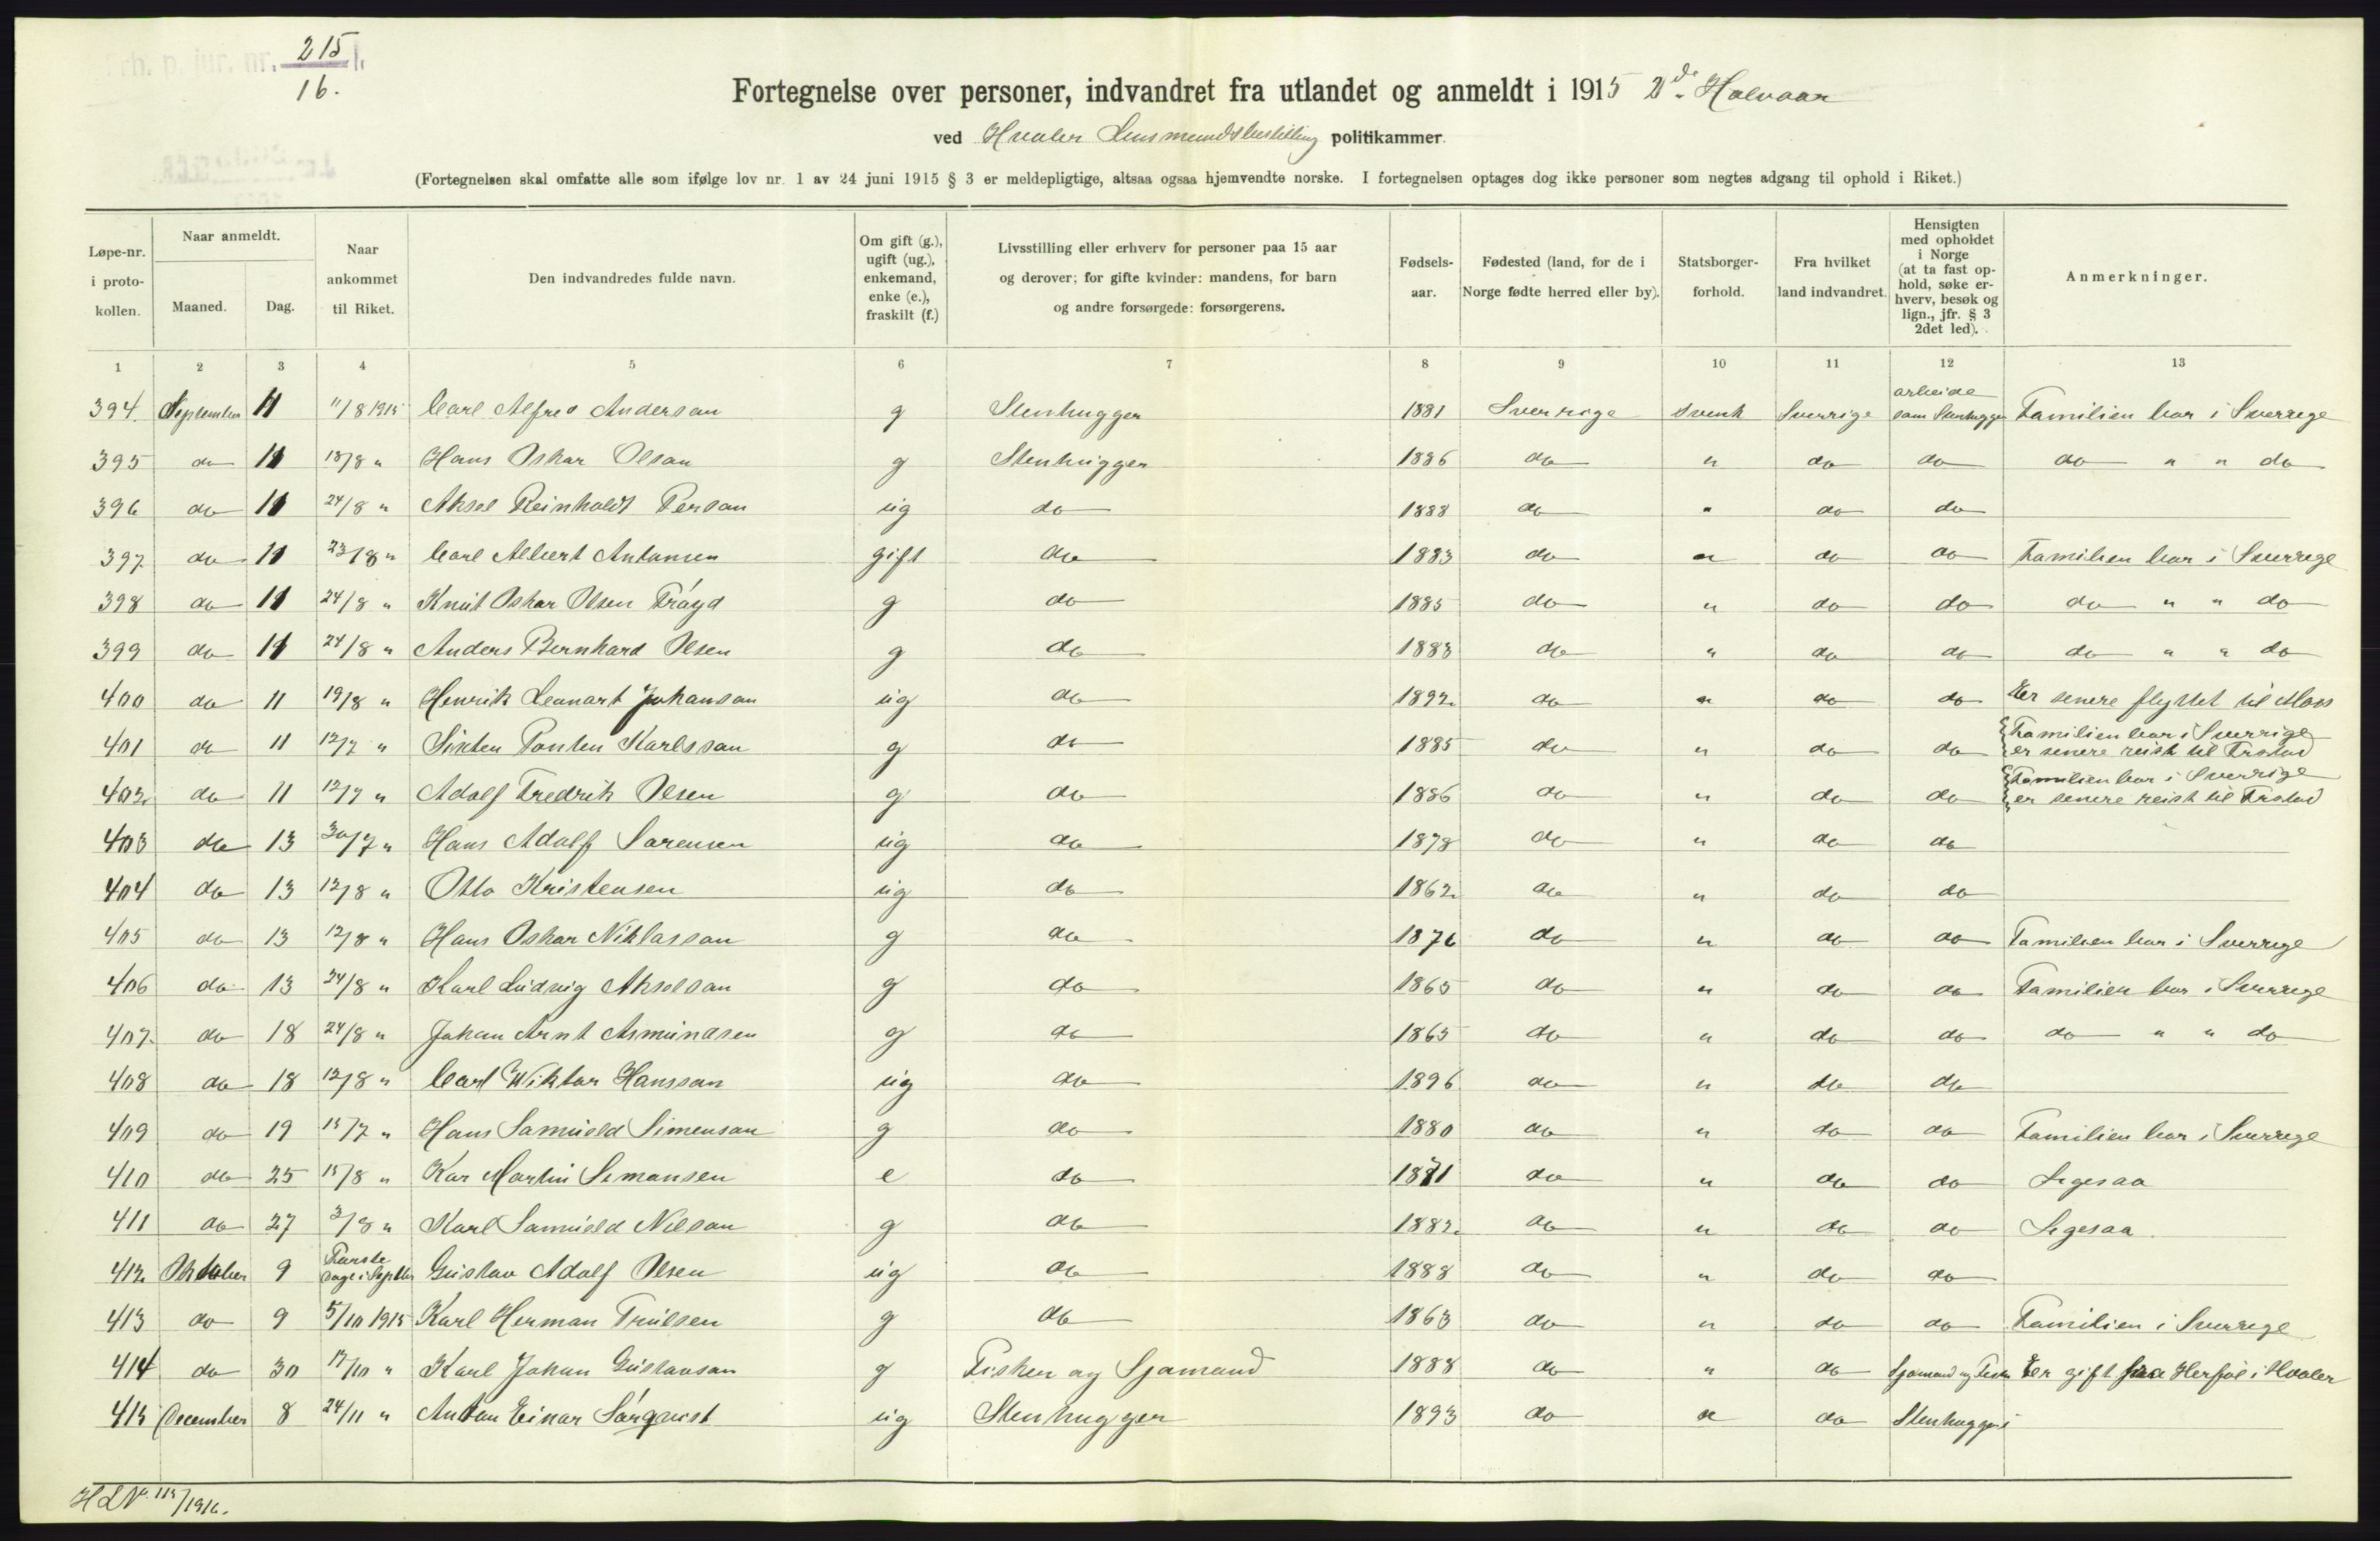 rh. p. jur. nr. 215
16.
Fortegnelse over personer, indvandret fra utlandet og anmeldt i 1915 2de Halvaar
ved Hvaler Lensmandsbestilling politikammer.
(Fortegnelsen skal omfatte alle som ifølge lov nr. 1 av 24 juni 1915 § 3 er meldepligtige, altsaa ogsaa hjemvendte norske. I fortegnelsen optages dog ikke personer som negtes adgang til ophold i Riket.)
Løpe-nr. i proto-kollen.
Naar anmeldt.
Maaned.
Dag.
Naar ankommet til Riket.
Den indvandredes fulde navn.
Om gift (g.), ugift (ug.), enkemand, enke (e.), fraskilt (f.)
Livsstilling eller erhverv for personer paa 15 aar og derover; for gifte kvinder: mandens, for barn og andre forsørgede: forsørgerens.
Fødsels-aar.
Fødested (land, for de i Norge fødte herred eller by).
Statsborger-forhold.
Fra hvilket land indvandret.
Hensigten med opholdet i Norge (at ta fast op-hold, søke er-hverv, besøk og lign., jfr. § 3 2det led).
Anmerkninger.
1 2 3 4 5 6 7 8 9 10 11 12 13
394. September 11 11/8 1915 Carl Alfred Anderson g Stenhugger 1881 Sverrige svensk Sverrige arbeide som Stenhugger Familien bor i Sverrige
395 do 11 18/8 " Hans Oskar Olsan g Stenhugger 1886 do " do do do " " do
396 do 11 24/8 " Aksel Reinholdt Persan ug do 1888 do " do do
397 do 11 23/8 " Carl Albert Antonsen gift do 1883 do " do do Familien bor i Sverrige
398 do 11 24/8 " Knut Oskar Olsen Fröyd g do 1885 do " do do do " " do
399 do 11 24/8 " Anders Bernhard Olsen g do 1883 do " do do do " " do
400 do 11 19/8 " Henrik Leonart Johanson ug do 1892 do " do do Er senere flyttet til Moss
401 do 11 12/7 " Sixten Ponten Karlsson g do 1885 do " do do Familien bor i Sverrige er senere reist til Frstad
402 do 11 12/7 " Adolf Fredrik Olsen g do 1886 do " do do Familien bor i Sverrige er senere reist til Frstad
403 do 13 30/7 " Hans Adolf Sorensen ug do 1878 do " do do
404 do 13 12/8 " Otto Kristensen ug do 1862 do " do do
405 do 13 12/8 " Hans Oskar Niklasson g do 1876 do " do do Familien bor i Sverrige
406 do 13 24/8 " Karl Ludvig Akselson g do 1865 do " do do Familien bor i Sverrige
407. do 18 24/8 " Johan Arnt Asmundsen g do 1865 do " do do do " " do
408 do 18 12/8 " Carl Wiktor Hansson ug do 1896 do " do do
409 do 19 15/7 " Hans Samueld Simenson g do 1880 do " do do Familien bor i Sverrige
410 do 25 15/8 " Kar Martin Semansen e do 1881 do " do do Ligesaa
411 do 27 3/8 " Karl Samueld Nilson g do 1882 do " do do Ligesaa
412 Oktober 9 Første dage i Septbr Gustav Adolf Olsen ug do 1888 do " do do
413 do 9 5/10 1915 Karl Herman Trulsen g do 1863 do " do do Familien i Sverrige
414 do 30 17/10 " Karl Johan Gustavson g Fisker og Sjømand 1888 do " do Sjømand og Fisker Er gift paa Herføl i Hvaler
415 December 8 24/11 " Anton Einar Sørqvist ug Stenhugger 1893 do " do Stenhuggeri
HLV. 115/1916.